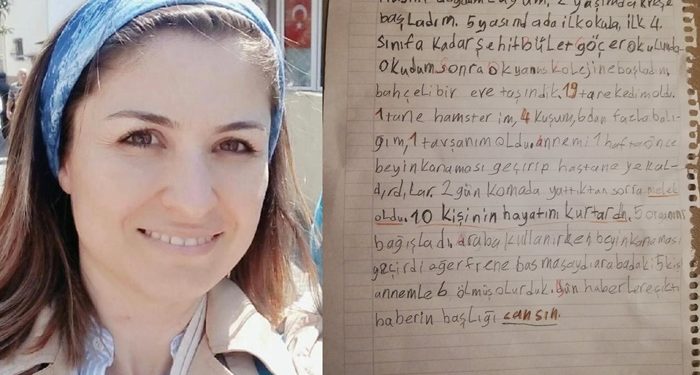 doğum 2 yaşında kreşe
başladım. 5 yaşında da ilkokula, ilk 4.
sınıfa kadar şehit Bület göçer okulunda
okudum sonra okyanus kolejine başladım
bahçeli bir eve taşındık. 19 tane kedim oldu.
1 tane hamsterim, 4 kuşum, 6 dan fazla balı-
ğım, 1 tavşanım oldu. annemi 1 hafta önce
beyin kanaması geçirip hastane ye kal-
dırdılar. 2 gün komada yattıktan sorra melek
oldu. 10 kişinin hayatını kurtardı. 5 organını
bağışladı. araba kullanırken beyin kanaması
geçirdi eğer frene basmasaydı arabadaki 5 kişi
annemle 6 ölmüş olurduk. haberlere çıktı
haberin başlığı cansın.